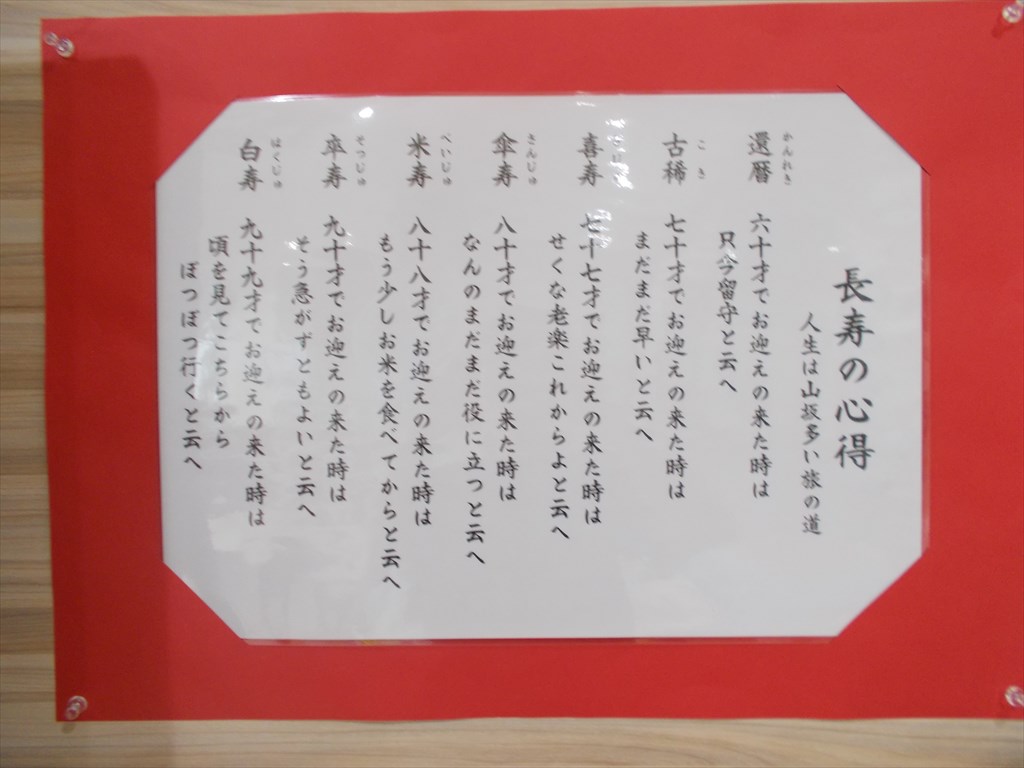 長寿の心得
人生は山坂多い旅の道
かんれき
還暦 六十才でお迎えの来た時は
只今留守と云へ
こき
古稀 七十才でお迎えの来た時は
まだまだ早いと云へ
喜寿 七十七才でお迎えの来た時は
せくな老楽これからよと云へ
さんじゅ
傘寿 八十才でお迎えの来た時は
なんのまだまだ役に立つと云へ
べいじゅ
米寿 八十八才でお迎えの来た時は
もう少しお米を食べてからと云へ
そつじゅ
卒寿 九十才でお迎えの来た時は
そう急がずともよいと云へ
はくじゅ
白寿 九十九才でお迎えの来た時は
頃を見てこちらから
ぼつぼつ行くと云へ